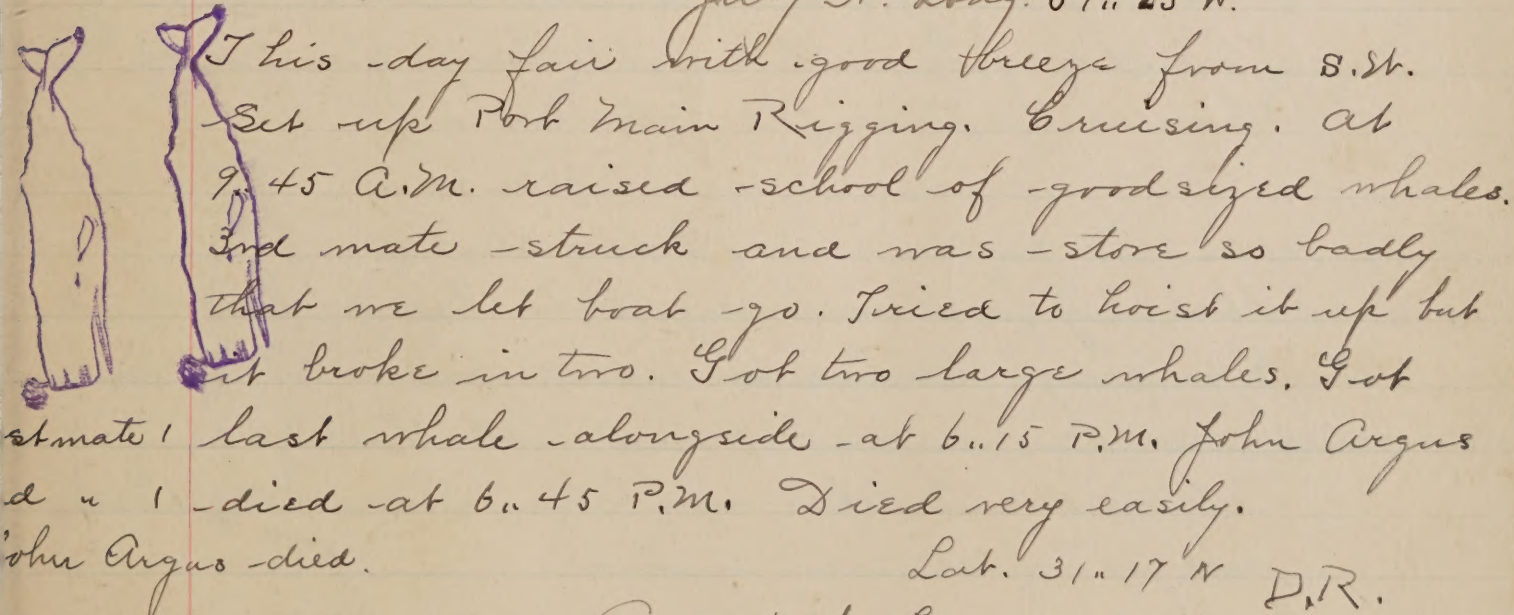 Long. 67,, 25 W.
This day fair with good breeze from S.W.
Set up Port Main Rigging. Cruising. At
9,, 45 A.M. raised school of good sized whales.
3rd mate struck and was stove so badly
that we let boat go. Tried to hoist it up but
it broke in two. Got two large whales. Got
st mate 1 last whale alongside at 6,,15 P.M. John Argus
d " 1 died at 6,, 45 P.M. Died very easily.
John Argus died. Lat. 31,, 17 N D.R.